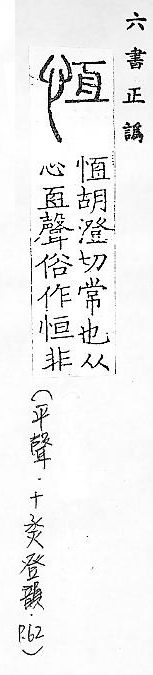 六書正譌
恆
恆胡澄切常也从
心亙聲俗作恒非
(平聲．十烝登韻．P.62)